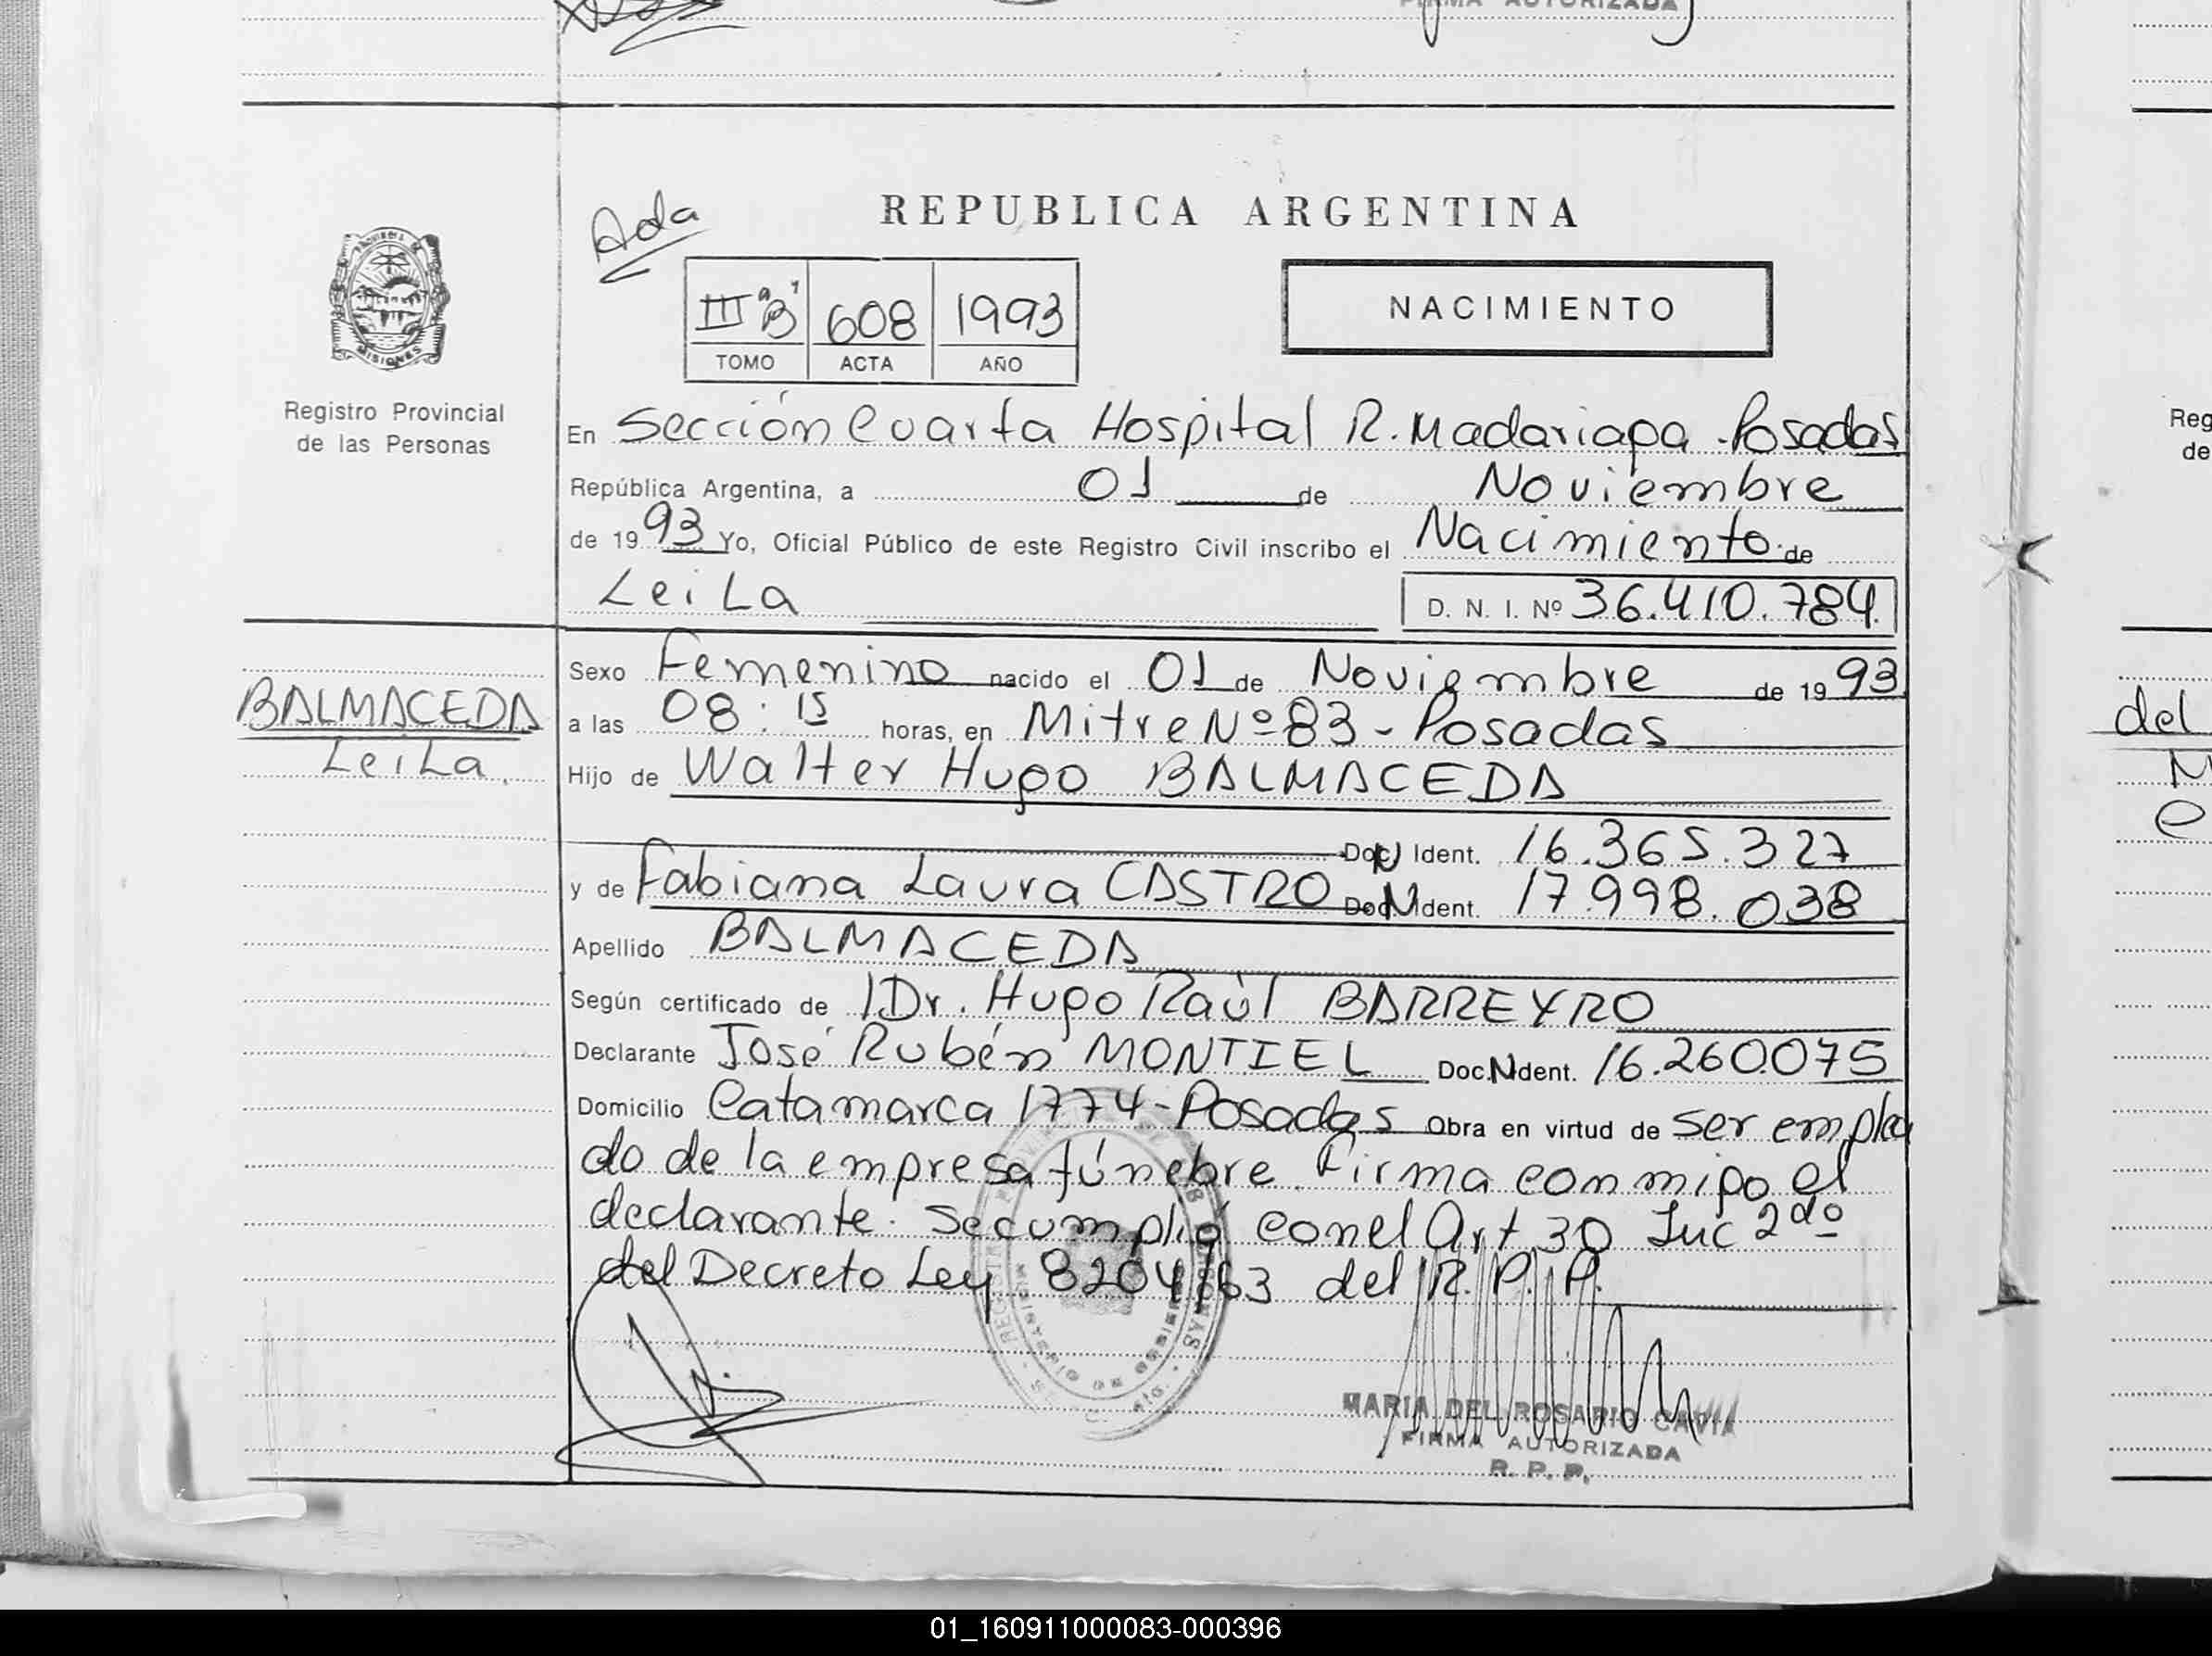 FIRMA AUTORIZADA
REPUBLICA ARGENTINA
Ada
III "B" 608 1993
TOMO ACTA AÑO
NACIMIENTO
PROVINCIA DE
MISIONES
Registro Provincial
de las Personas
En Sección Cuarta Hospital R. Madariaga - Posadas
República Argentina, a 01 de Noviembre
de 1993 Yo, Oficial Público de este Registro Civil inscribo el Nacimiento de
Leila D. N. I. Nº 36.410.784.
BALMACEDA
Leila.
Sexo Femenino nacido el 01 de Noviembre de 1993
a las 08:15 horas, en Mitre Nº 83 - Posadas
Hijo de Walter Hugo BALMACEDA
Doc. N Ident. 16.365.327
y de Fabiana Laura CASTRO Doc. N Ident. 17.998.038
Apellido BALMACEDA
Según certificado de Dr. Hugo Raúl BARREYRO
Declarante José Rubén MONTIEL Doc. N Ident. 16.260.075
Domicilio Catamarca 1774 - Posadas Obra en virtud de ser emplea
do de la empresa fúnebre. Firma conmigo el
declarante. Se cumplió con el Art 30 Inc 2do
del Decreto Ley 8204/63 del R. P. P.
MARIA DEL ROSARIO CAVIA
FIRMA AUTORIZADA
R. P. P.
Reg
de
del
01_160911000083-000396